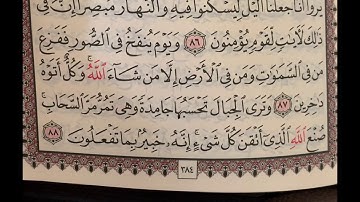 يَرَوْا أَنَّا جَعَلْنَا ٱلَّيْلَ لِيَسْكُنُوا۟ فِيهِ وَٱلنَّهَارَ مُبْصِرًا إِنَّ فِى
ذَٰلِكَ لَءَايَٰتٍ لِّقَوْمٍ يُؤْمِنُونَ ٨٦ وَيَوْمَ يُنفَخُ فِى ٱلصُّورِ فَفَزِعَ
مَن فِى ٱلسَّمَٰوَٰتِ وَمَن فِى ٱلْأَرْضِ إِلَّا مَن شَآءَ ٱللَّهُ ۚ وَكُلٌّ أَتَوْهُ
دَٰخِرِينَ ٨٧ وَتَرَى ٱلْجِبَالَ تَحْسَبُهَا جَامِدَةً وَهِىَ تَمُرُّ مَرَّ ٱلسَّحَابِ ۚ
صُنْعَ ٱللَّهِ ٱلَّذِىٓ أَتْقَنَ كُلَّ شَىْءٍ ۚ إِنَّهُۥ خَبِيرٌۢ بِمَا تَفْعَلُونَ ٨٨
٣٨٤